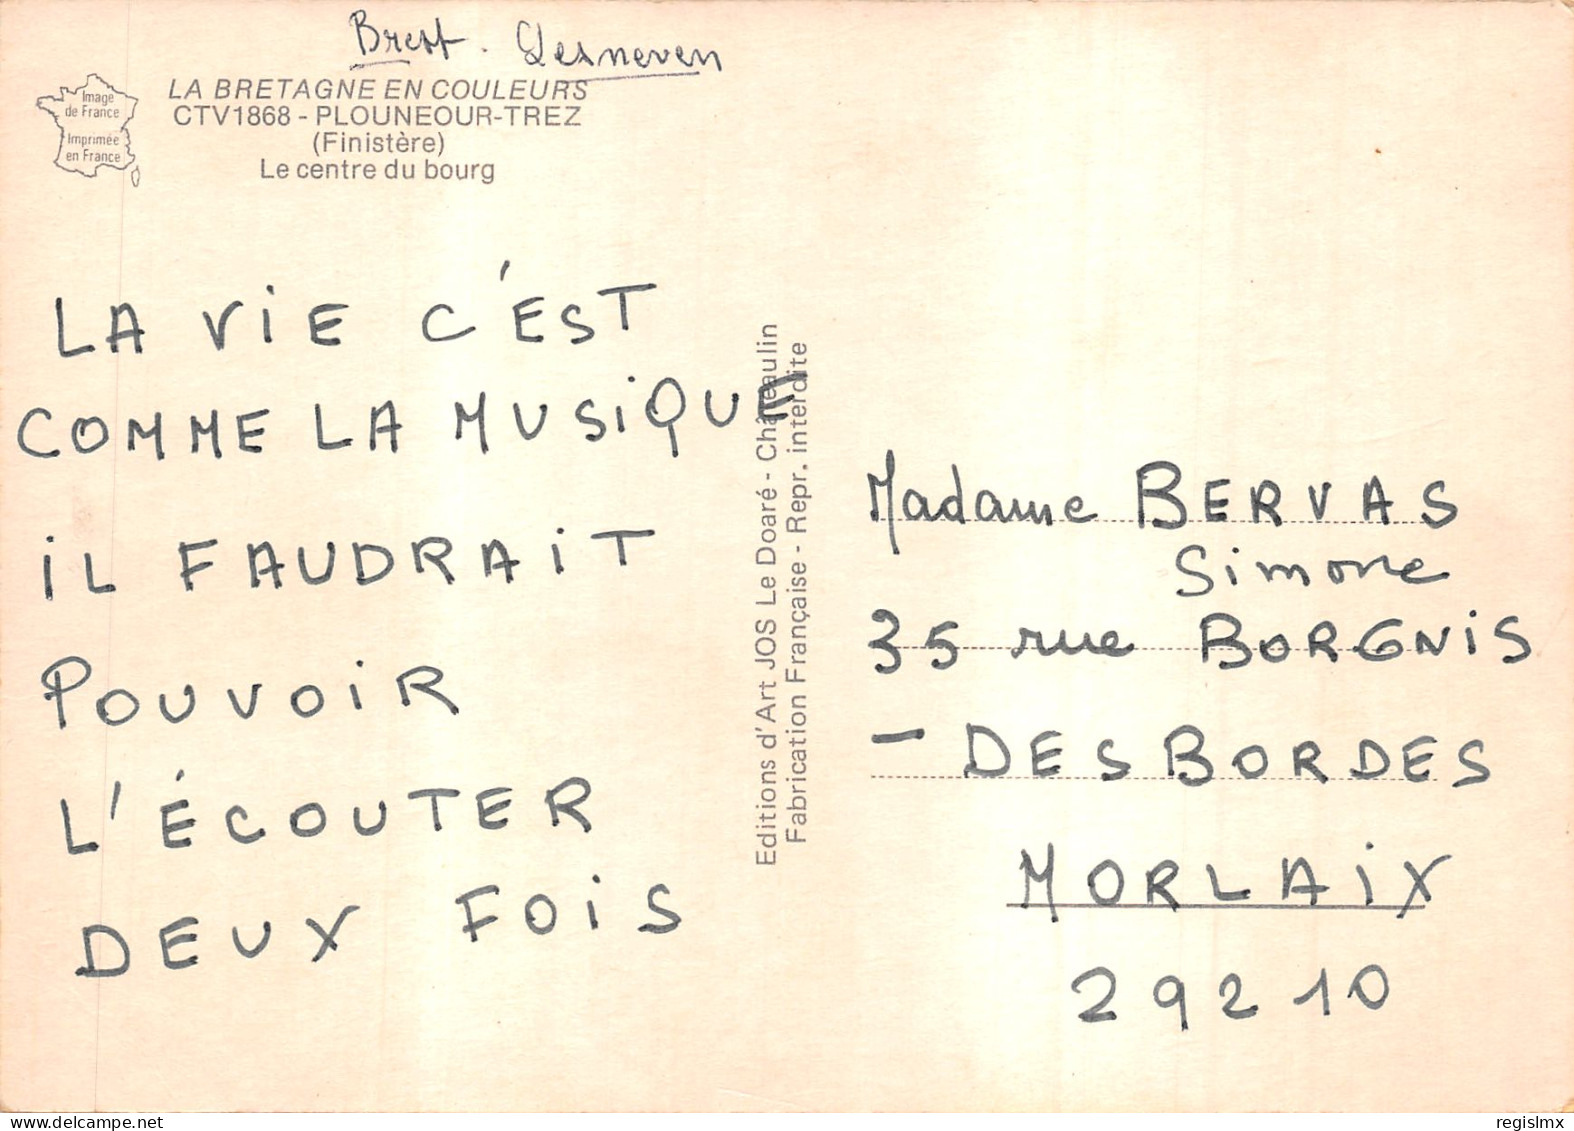 Brest. Lesneven
Image
de France
Imprimée
en France
LA BRETAGNE EN COULEURS
CTV1868 - PLOUNEOUR-TREZ
(Finistère)
Le centre du bourg
LA ViE C'EST
COMME LA MUSiQUE
iL FAUDRAiT
POUVOiR
L'ÉCOUTER
DEUX FOiS
Editions d'Art JOS Le Doaré - Châteaulin
Fabrication Française - Repr. interdite
Madame BERVAS
Simone
35 rue BORGNiS
- DESBORDES
MORLAiX
29210
regislmx